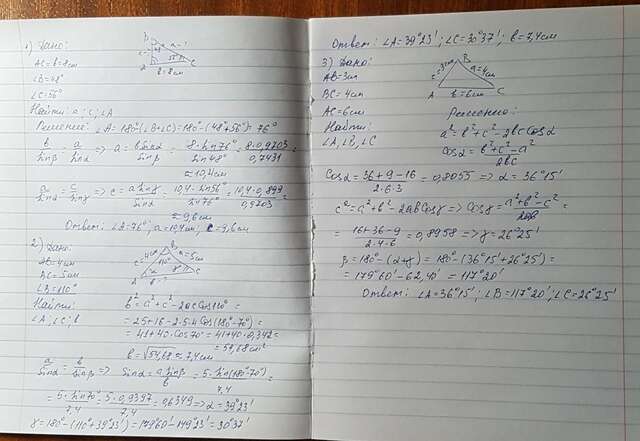 1) Дано:
AC = b = 8см
∠B = 48°
∠C = 56°
Найти: a; c; ∠A
Решение: ∠A = 180° - (∠B + ∠C) = 180° - (48° + 56°) = 76°
b/sinβ = a/sinα => a = b sinα/sinβ = 8·sin76°/sin48° = 8·0,9703/0,7431
≈ 10,4см
a/sinα = c/sinγ => c = a sinγ/sinα = 10,4·sin56°/sin76° = 10,4·0,829/0,9703
≈ 9,6см
Ответ: ∠A = 76°; a = 10,4см; c = 9,6см
B
a - ?
A
b = 8см
C
2) Дано:
AB = 4см
BC = 5см
∠B = 110°
Найти:
∠A; ∠C; b
B
110°
A
C
b² = a² + c² - 2ac cos110° =
= 25 + 16 - 2·5·4 cos(180° - 70°) =
= 41 + 40·cos70° = 41 + 40·0,342 =
= 54,68см²
b = √54,68 ≈ 7,4см
a/sinα = b/sinβ => sinα = a sinβ/b = 5·sin(180° - 70°)/7,4 =
= 5·sin70°/7,4 = 5·0,9397/7,4 = 0,6349 => α = 39°23'
γ = 180° - (110° + 39°23') = 179°60' - 149°23' = 30°37'
Ответ: ∠A = 39°23'; ∠C = 30°37'; b = 7,4см
3) Дано:
AB = 3см
BC = 4см
AC = 6см
Найти:
∠A, ∠B, ∠C
B
c = 3см
a = 4см
A
b = 6см
C
Решение:
a² = b² + c² - 2bc cosα
cosα = b² + c² - a²/2bc
cosα = 36 + 9 - 16/2·6·3 = 0,8055 => α = 36°15'
c² = a² + b² - 2ab cosγ => cosγ = a² + b² - c²/2ab =
= 16 + 36 - 9/2·4·6 = 0,8958 => γ = 26°25'
β = 180° - (α + γ) = 180° - (36°15' + 26°25') =
= 179°60' - 62°40' = 117°20'
Ответ: ∠A = 36°15'; ∠B = 117°20'; ∠C = 26°25'